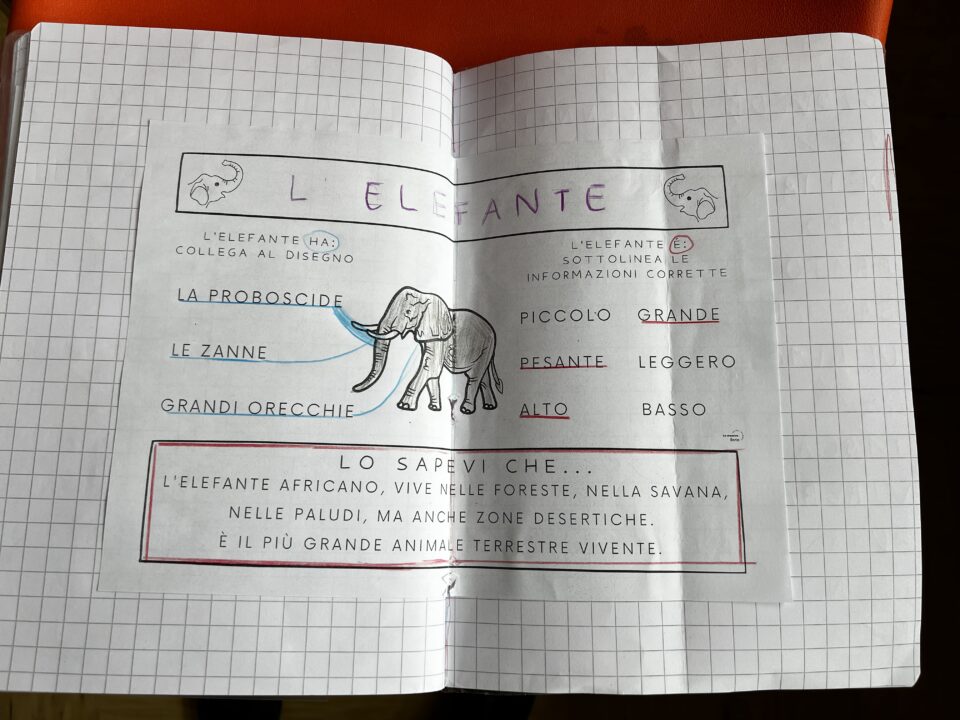 L ELEFANTE
L'ELEFANTE HA:
COLLEGA AL DISEGNO
LA PROBOSCIDE
LE ZANNE
GRANDI ORECCHIE
L'ELEFANTE È:
SOTTOLINEA LE
INFORMAZIONI CORRETTE
PICCOLO GRANDE
PESANTE LEGGERO
ALTO BASSO
LO SAPEVI CHE...
L'ELEFANTE AFRICANO, VIVE NELLE FORESTE, NELLA SAVANA,
NELLE PALUDI, MA ANCHE ZONE DESERTICHE.
È IL PIÙ GRANDE ANIMALE TERRESTRE VIVENTE.